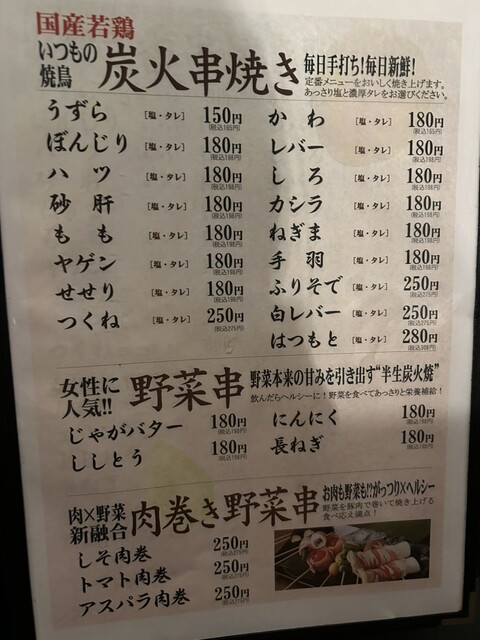 国産若鶏
いつもの
焼鳥
炭火串焼き
毎日手打ち!毎日新鮮!
定番メニューをおいしく焼き上げます。
あっさり塩と濃厚タレをお選びください。
うずら [塩・タレ] 150円
(税込165円)
ぼんじり [塩・タレ] 180円
(税込198円)
ハツ [塩・タレ] 180円
(税込198円)
砂肝 [塩・タレ] 180円
(税込198円)
もも [塩・タレ] 180円
(税込198円)
ヤゲン [塩・タレ] 180円
(税込198円)
せせり [塩・タレ] 180円
(税込198円)
つくね [塩・タレ] 250円
(税込275円)
かわ [塩・タレ] 180円
レバー [塩・タレ] 180円
(税込198円)
しろ [塩・タレ] 180円
(税込198円)
カシラ [塩・タレ] 180円
(税込198円)
ねぎま [塩・タレ] 180円
(税込198円)
手羽 [塩・タレ] 180円
(税込198円)
ふりそで [塩・タレ] 250円
白レバー [塩・タレ] 250円
(税込275円)
はつもと [塩・タレ] 280円
(税込308円)
女性に
人気!!
野菜串
野菜本来の甘みを引き出す"半生炭火焼"
飲んだらヘルシーに!野菜を食べてあっさりと栄養補給!
じゃがバター 180円
ししとう 180円
にんにく 180円
長ねぎ 180円
肉×野菜
新融合
肉巻き野菜串
お肉も野菜も!?がっつり×ヘルシー
野菜を豚肉で巻いて焼き上げる
食べ応え満点!
しそ肉巻 250円
トマト肉巻 250円
アスパラ肉巻 250円